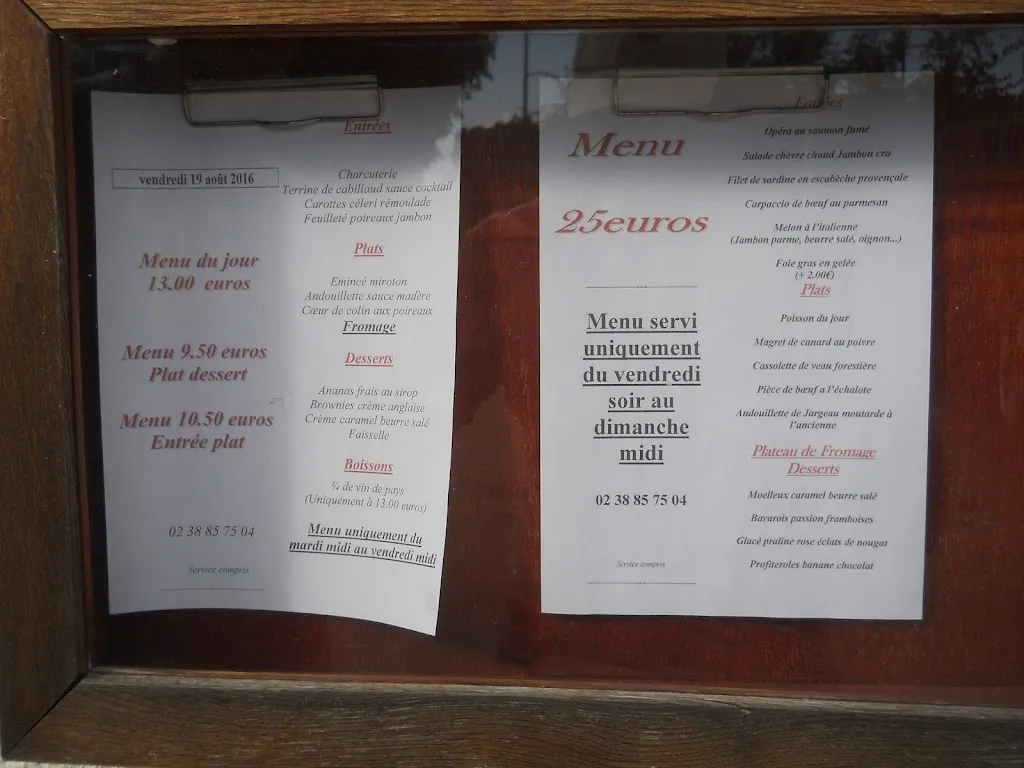 vendredi 19 août 2016
Menu du jour
13.00 euros
Menu 9.50 euros
Plat dessert
Menu 10.50 euros
Entrée plat
02 38 85 75 04
Service compris
Entrées
Charcuterie
Terrine de cabillaud sauce cocktail
Carottes céleri rémoulade
Feuilleté poireaux jambon
Plats
Emincé miroton
Andouillette sauce madère
Cœur de colin aux poireaux
Fromage
Desserts
Ananas frais au sirop
Brownies crème anglaise
Crème caramel beurre salé
Faisselle
Boissons
¼ de vin de pays
(Uniquement à 13.00 euros)
Menu uniquement du
mardi midi au vendredi midi
Menu
25euros
Menu servi
uniquement
du vendredi
soir au
dimanche
midi
02 38 85 75 04
Service compris
Entrées
Opéra au saumon fumé
Salade chèvre chaud Jambon cru
Filet de sardine en escabèche provençale
Carpaccio de bœuf au parmesan
Melon à l'italienne
(Jambon parme, beurre salé, oignon...)
Foie gras en gelée
(+ 2.00€)
Plats
Poisson du jour
Magret de canard au poivre
Cassolette de veau forestière
Pièce de bœuf a l'échalote
Andouillette de Jargeau moutarde à
l'ancienne
Plateau de Fromage
Desserts
Moelleux caramel beurre salé
Bavarois passion framboises
Glacé praline rose éclats de nougat
Profiteroles banane chocolat